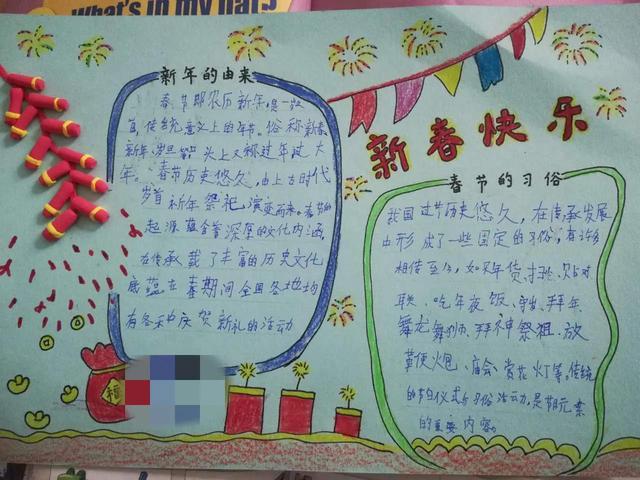 What's in my hat?
新年的由来
春节即农历新年,是一
传统意义上的年节。俗称新春
新年 头上又称过年过大
年。春节历史悠久,由上古时代
岁首祈年祭祀演变而来。春节的
起源蕴含着深厚的文化内涵,
在传承载了丰富的历史文化
底蕴在春期间全国各地均
有各种庆贺新礼的活动
新春快乐
春节的习俗
我国过节历史悠久,在传承发展
中形成了一些固定的习俗,有许多
相传至今,如买年货,扫 ,贴对
联、吃年夜饭、守岁、拜年、
舞龙舞狮、拜神祭祖、放
鞭炮、庙会、赏花灯等。传统
的节日仪式与习俗活动,是节元素
的重要内容。
福